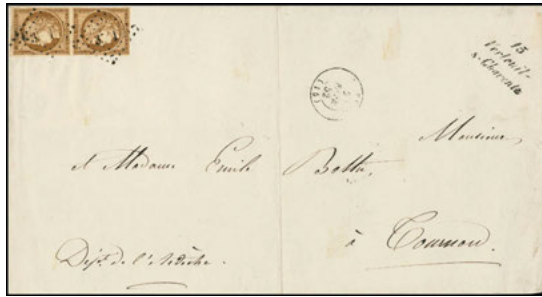 15
Verteuil-
s-Charente
52
(15)
Monsieur,
et Madame Emile Bottu,
à Tournon.
Dépt. de l'Ardèche.